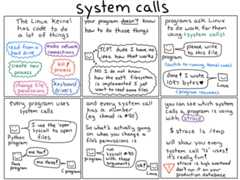 system calls
The Linux kernel
has code to do
a lot of things
read from a
hard drive
make network
connections
create new
process
kill
process
change file
permissions
keyboard
drivers
your program doesn't know
how to do those things
TCP? dude I have no
idea how that works
NO I do not know
how the ext4 filesystem is
implemented. I just
want to read some files
programs ask Linux
to do work for them
using system calls
please write
to this file
(switch to running kernel code)
done! I wrote
bytes
program
Linux
(program resumes)
every program uses
system calls
I use the 'open'
syscall to open
files
Python
program
me too!
me three!
and every system call
has a number
(eg chmod is #90)
So what's actually going
on when you change a
file's permissions is
run
syscall #90
with these
arguments
you can see which system
calls a program is using
with strace
$ strace ls /tmp
will show you every
system call 'ls' uses!
it's really fun!
strace is high overhead
don't run it on your
production database